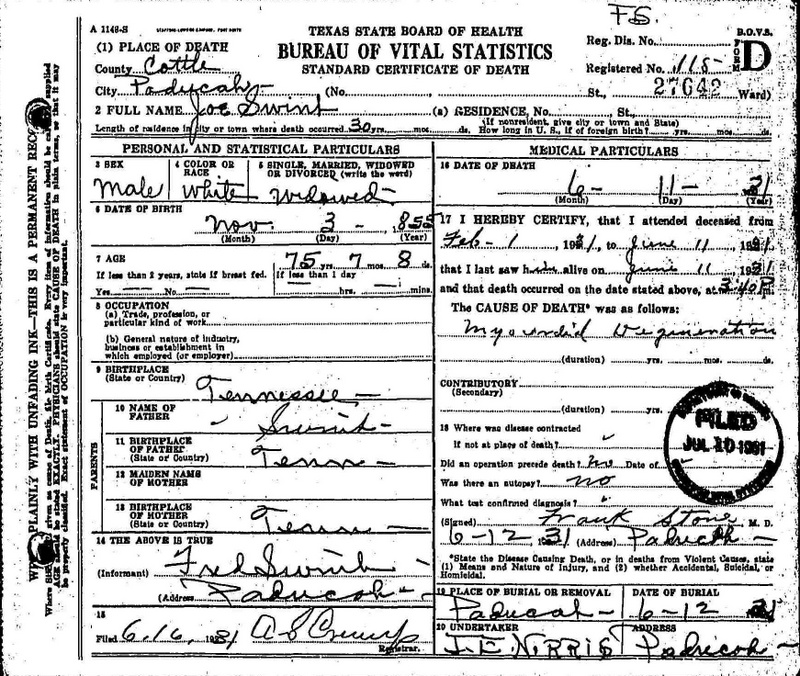 F.S.
A 1149-S
TEXAS STATE BOARD OF HEALTH
BUREAU OF VITAL STATISTICS
STANDARD CERTIFICATE OF DEATH
B.O.V.S.
FORM D
Reg. Dis. No.
Registered No. 115-
27642
(1) PLACE OF DEATH
County Cottle
City Paducah- (No. St., Ward)
2 FULL NAME Joe Swint (a) RESIDENCE, No. St.,
(If nonresident, give city or town and State)
Length of residence in city or town where death occurred 30 yrs. mos. ds. How long in U. S., if of foreign birth? yrs. mos. ds.
PERSONAL AND STATISTICAL PARTICULARS
3 SEX
Male
4 COLOR OR RACE
White
5 SINGLE, MARRIED, WIDOWED OR DIVORCED (write the word)
Widowed
6 DATE OF BIRTH
Nov. 3 - 855
(Month) (Day) (Year)
7 AGE 75 yrs. 7 mos. 8 ds.
If less than 2 years, state if breast fed. If less than 1 day
Yes — No — — hrs. — mins.
8 OCCUPATION
(a) Trade, profession, or particular kind of work
(b) General nature of industry, business or establishment in which employed (or employer)
9 BIRTHPLACE
(State or Country) Tennessee -
PARENTS
10 NAME OF FATHER - Swint -
11 BIRTHPLACE OF FATHER (State or Country) Tenn -
12 MAIDEN NAME OF MOTHER
13 BIRTHPLACE OF MOTHER (State or Country) Tenn -
14 THE ABOVE IS TRUE
(Informant) Fred Swint
(Address) Paducah -
15
Filed 6-16, 1931 Registrar.
MEDICAL PARTICULARS
16 DATE OF DEATH
6- 11- 31
(Month) (Day) (Year)
17 I HEREBY CERTIFY, that I attended deceased from
Feb - 1 1931, to June 11 1931
that I last saw him alive on June 11 1931
and that death occurred on the date stated above, at 3:40 P
The CAUSE OF DEATH* was as follows:
Myocardid Degeneration
(duration) yrs. mos. ds.
CONTRIBUTORY
(Secondary)
(duration) yrs.
18 Where was disease contracted
If not at place of death?
Did an operation precede death? no Date of
Was there an autopsy? no
What test confirmed diagnosis?
(Signed) Frank Stone M. D.
6-12 1931 (Address) Paducah
FILED
JUL 10 1931
*State the Disease Causing Death, or in deaths from Violent Causes, state
(1) Means and Nature of Injury, and (2) whether Accidental, Suicidal, or
Homicidal.
19 PLACE OF BURIAL OR REMOVAL
Paducah -
DATE OF BURIAL
6-12 31
20 UNDERTAKER
J.E. NORRIS
ADDRESS
Paducah -